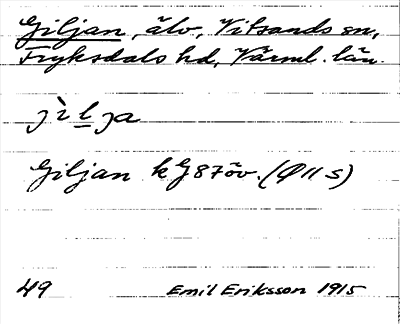 Giljan, älv, Vitsands sn,
Fryksdals hd, Värml. län.
jìlja
Giljan k G87öv. (Ø11S)
49 Emil Eriksson 1915